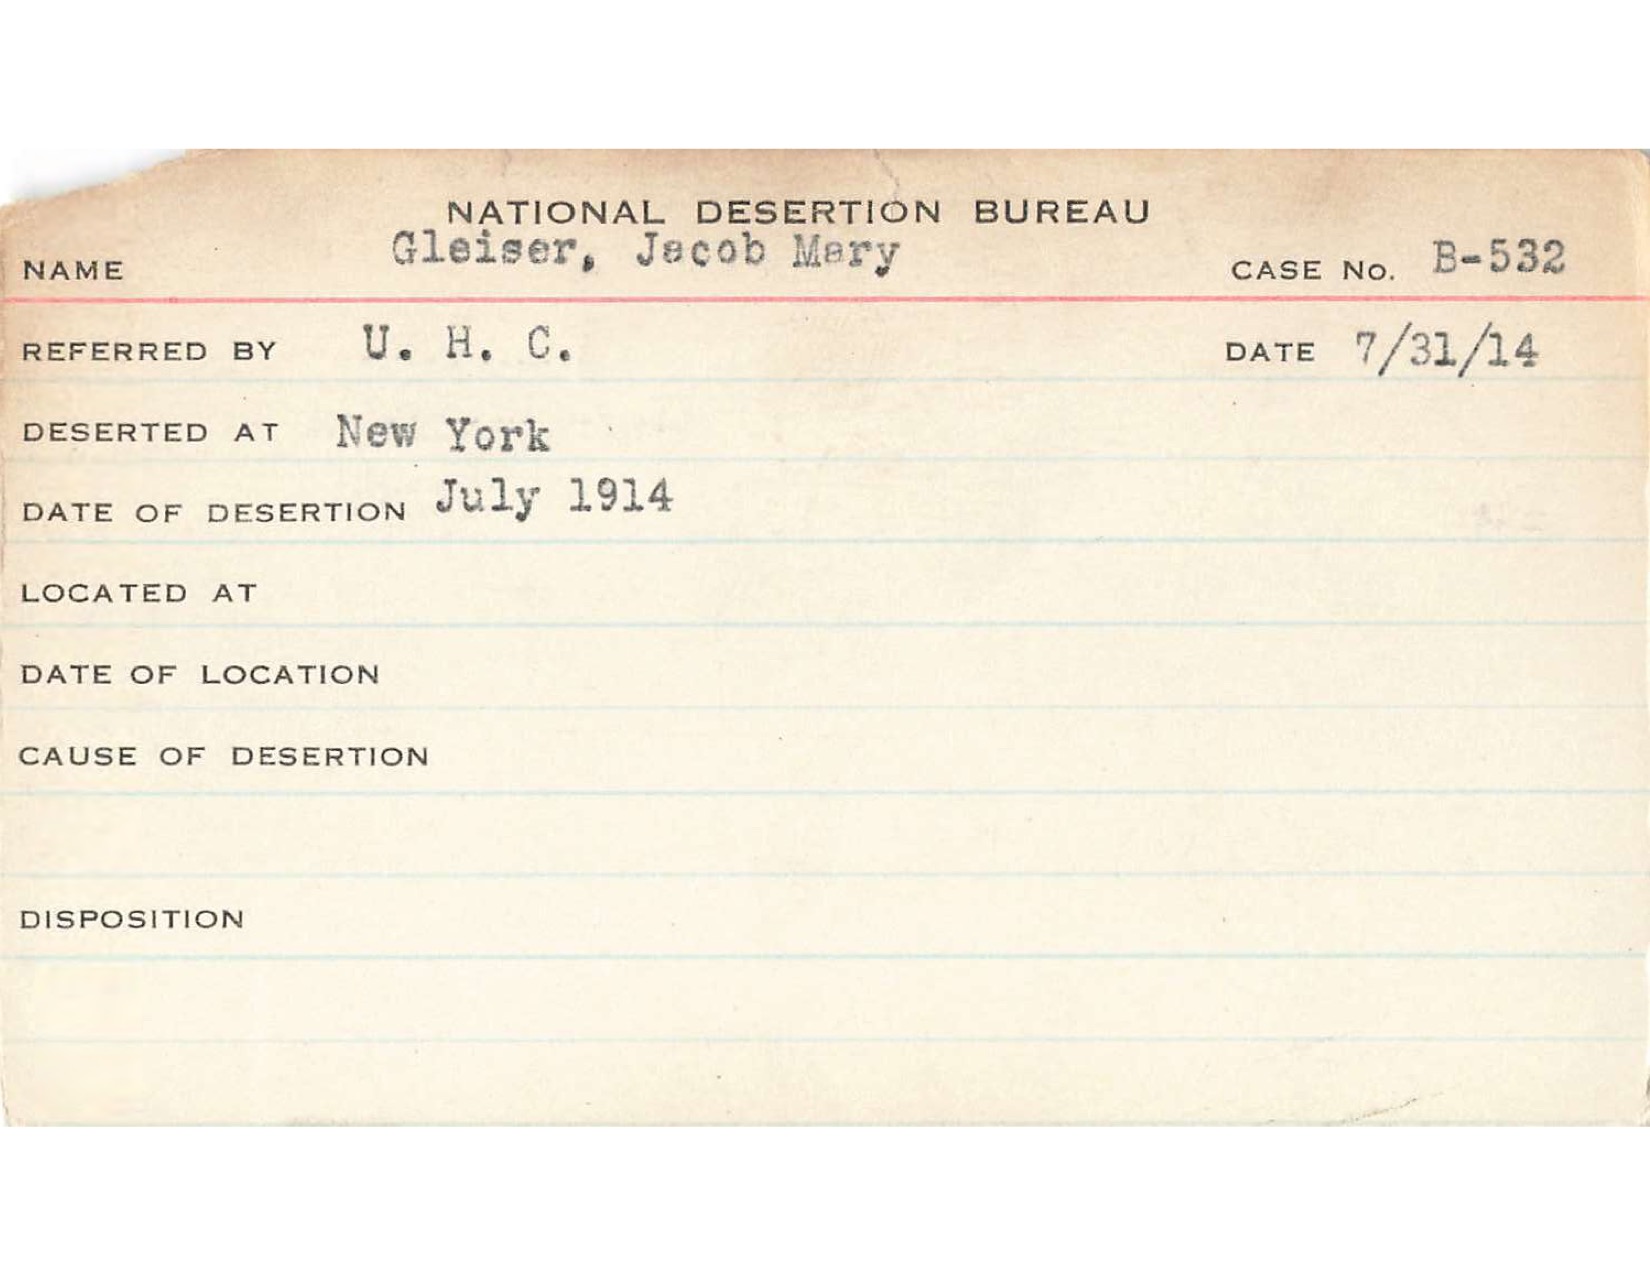 NATIONAL DESERTION BUREAU
NAME Gleiser, Jacob Mary CASE No. B-532
REFERRED BY U. H. C. DATE 7/31/14
DESERTED AT New York
DATE OF DESERTION July 1914
LOCATED AT
DATE OF LOCATION
CAUSE OF DESERTION
DISPOSITION